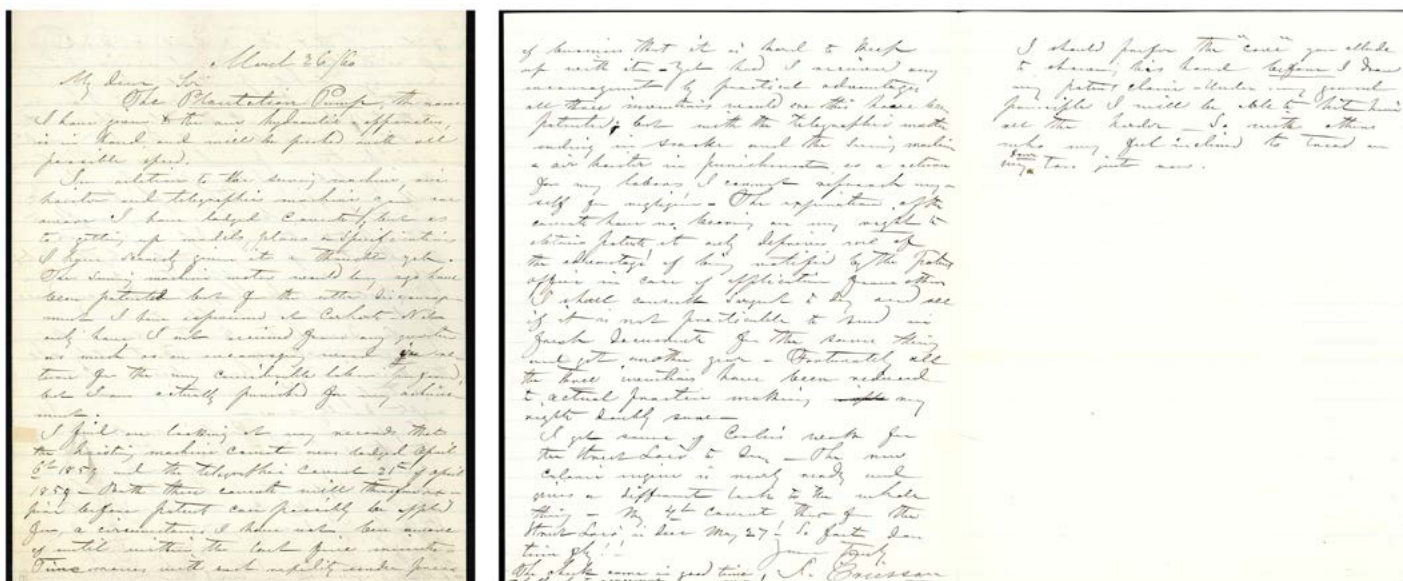 March 26/60
My Dear Sir
The Plantation Pump, the name
I have given to the new hydraulic apparatus,
is in hand and will be pushed with all
possible speed.
In relation to the sewing machine, air
hoister and telegraphic machine you are
aware I have lodged caveats, but as
to getting up models, plans or specifications
I have scarcely given it a thought yet.
The sewing machine motor would long ago have
been patented but for the utter discourage-
ment I have experienced at
only have I not received from any quarter
as much as an encouraging word in re-
turn for the very considerable labor
but I am actually punished for my
ment.
I find on looking at my records that
the hoisting machine caveat was lodged April
6th 1859 and the telegraphic caveat 21st of April
1859 – Both these caveats will therefore ex-
pire before patent can possibly be applied
for, a circumstance I have not been aware
of until within the last five minutes –
Time moves with such rapidity under press
of business that it is hard to keep
up with it – Yet had I received any
encouragement by practical advantages
all these inventions would ere this have been
patented; but with the telegraphic matter
ending in smoke and the sewing machine
& air hoister in punishment as a return
for my labors I cannot reproach my-
self for negligence – The expiration of the
caveats have no bearing on my right to
obtain patent, it only deprives me of
the advantage of being notified by the Patent
office in case of application from others
I shall consult to day and see
if it is not practicable to send in
fresh documents for the same thing
and get another year – Fortunately all
the three inventions have been reduced
to actual practice making my
rights doubly sure –
I get some of work for
the Street to day – The new
caloric engine is nearly ready and
gives a different look to the whole
thing – My 4th caveat for the
Street is due May 27! So fast does
time fly! –
Yours truly
The check came in good time, J. Ericsson
I should prefer the "cove" you allude
to shewing his hand before I draw
my patent claim – Under my general
principle I will be able to hit him
all the harder – So with others
who may feel inclined to tread on
my toes just now.